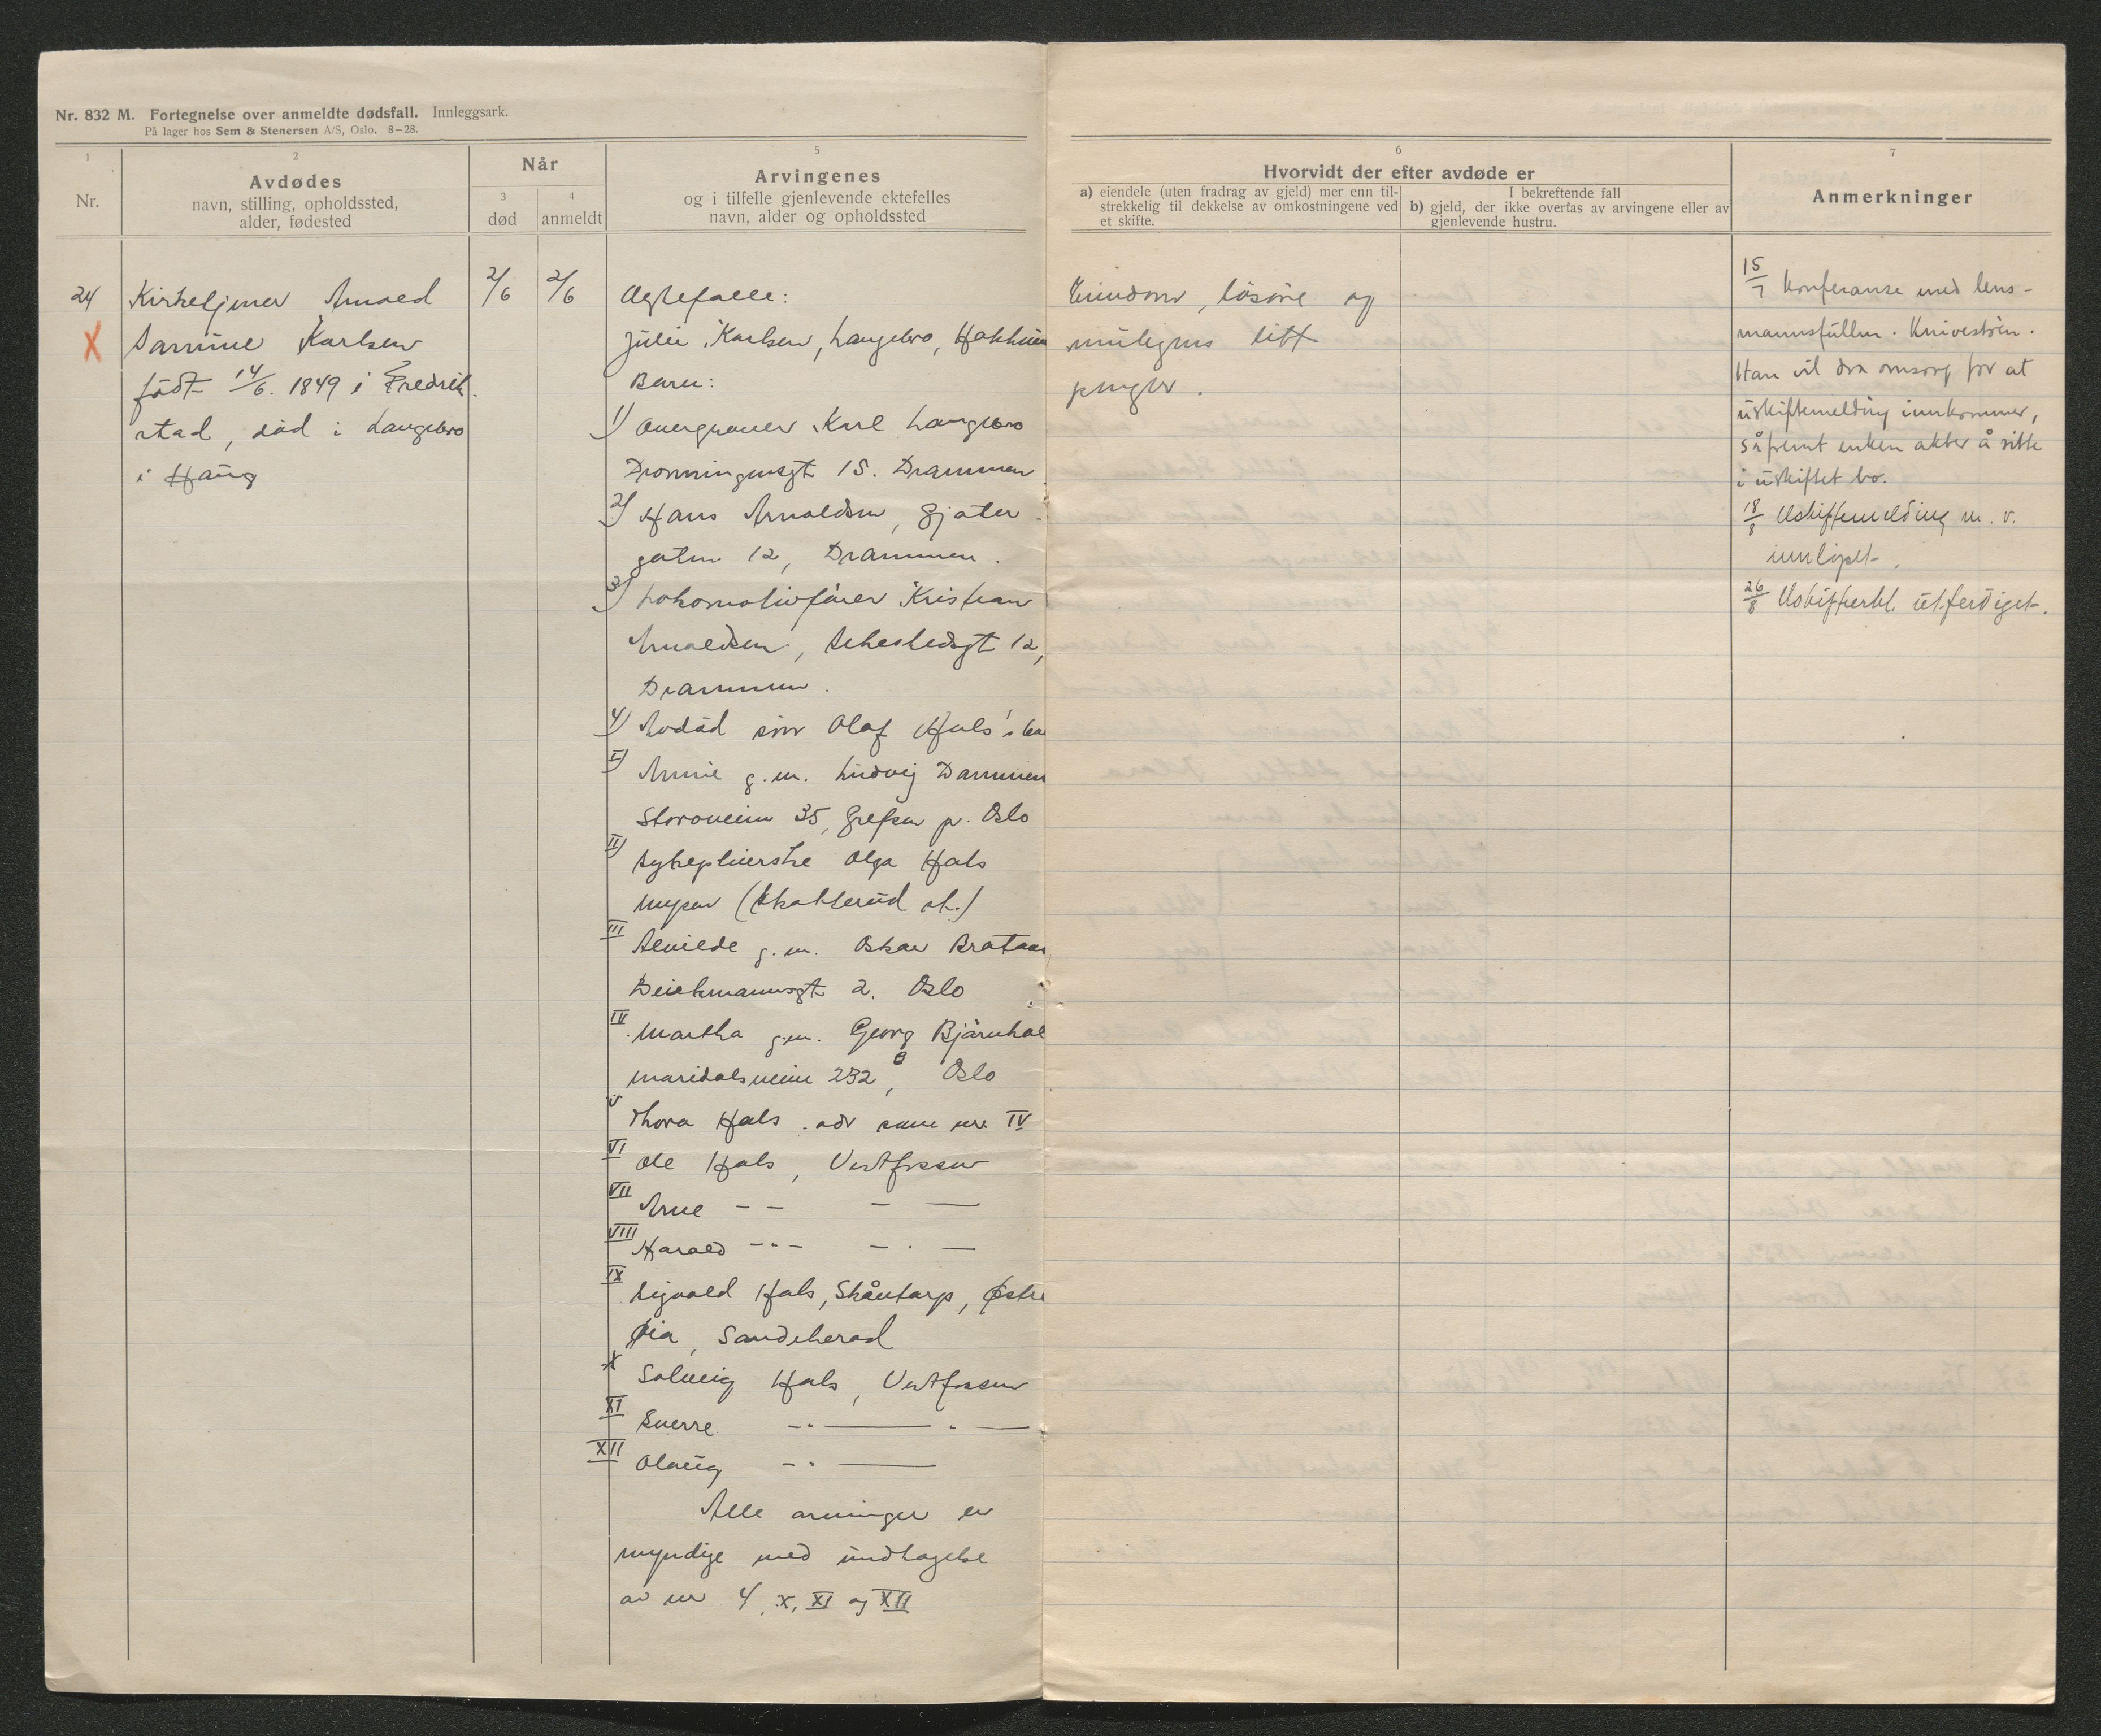 Nr. 832 M. Fortegnelse over anmeldte dødsfall. Innleggsark.
På lager hos Sem & Stenersen A/S, Oslo. 8–28.
1
Nr.
2
Avdødes
navn, stilling, opholdssted,
alder, fødested
Når
3
død
4
anmeldt
5
Arvingenes
og i tilfelle gjenlevende ektefelles
navn, alder og opholdssted
6
Hvorvidt der efter avdøde er
a) eiendele (uten fradrag av gjeld) mer enn til-
strekkelig til dekkelse av omkostningene ved
et skifte.
I bekreftende fall
b) gjeld, der ikke overtas av arvingene eller av
gjenlevende hustru.
7
Anmerkninger
24
X
Kirketjener Arnold
Samine Karlsen
født 14/6. 1849 i Fredrik-
stad, död i Langebro
i Haug
2/6
2/6
Ægtefælle:
Julie Karlsen, Langebro, Hokksun
Barn:
1) Karl Langebro
Dronningensgt 15. Drammen
2) Hans Arnoldsen, Gjæter-
gaten 12, Drammen.
3) Lokomotivfører Kristian
Arnoldsen, Sehestedsgt 12,
Drammen.
4) Avdöd sön Olaf Hals's
I) g.m. Ludvig Dammen
Storoveien 35, Grefsen pr. Oslo
II) Sykepleierske Olga Hals
Mysen (
III) Alvilde g.m. Oskar Brataas
Deichmannsgt 2. Oslo
IV Martha g.m. Georg Bjärnhol
Maridalsveien 232, Oslo
V Thora Hals. adr samme nr. IV
VI Ole Hals, Vestfossen
VII Arne – – – —
VIII Harald –"– – . —
IX Sigvald Hals, Skåntorp, Østre
Øia, Sandeherad
X Solveig Hals, Vestfossen
XI Sverre –"— " —
XII Olaug –"—
Alle arvinger er
myndige med undtagelse
av nr 4, X, XI og XII
Eiendom, lösöre og
muligens litt
penger.
15/7 Konferanse med lens-
mannsfullm. Knivestöen.
Han vil dra omsorg for at
uskiftemelding innkommer,
såfremt enken akter å sitte
i uskiftet bo.
18/8 Uskiftemelding m. v.
innlöpet.
26/8 Uskifteatt. utferdiget.